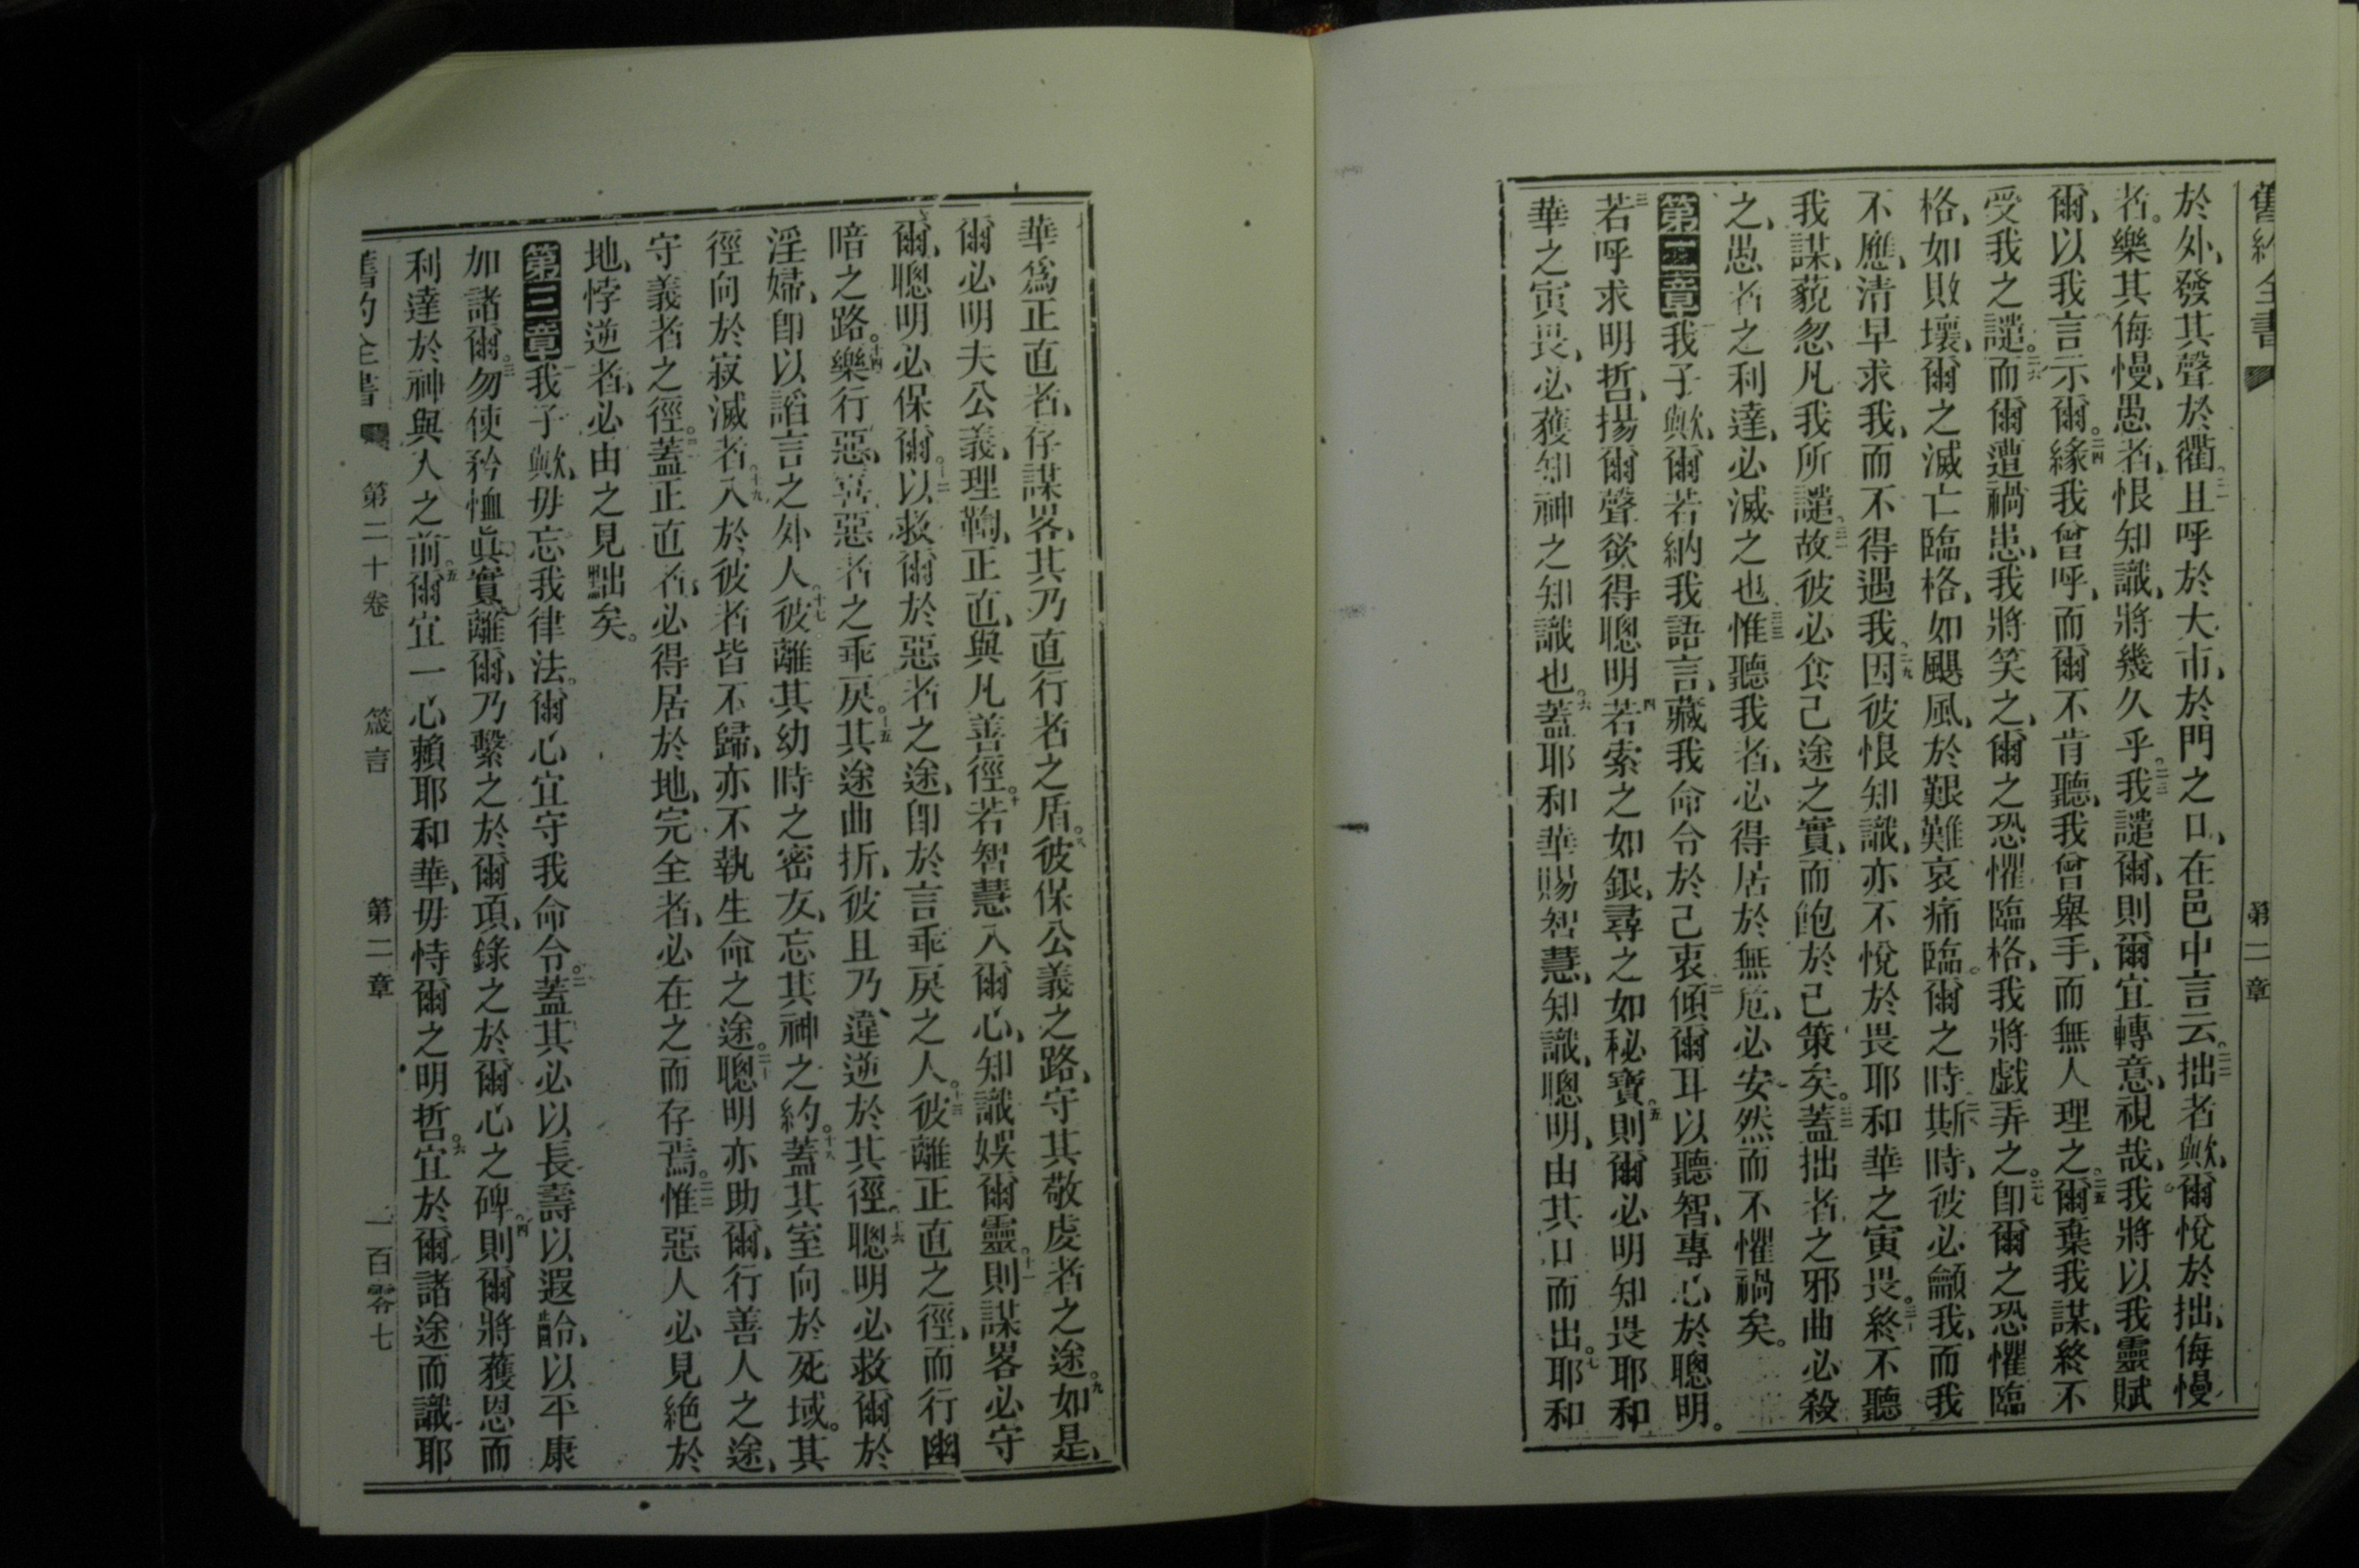 舊約全書 第二章
於外、發其聲於衢、二一且呼於大市、於門之口、在邑中言云。二二拙者歟、爾悅於拙、侮慢
者。樂其侮慢、愚者、恨知識、將幾久乎。二三我譴爾、則爾宜轉意、視哉、我將以我靈賦
爾、以我言示爾。二四緣我曾呼、而爾不肯聽、我曾舉手、而無人理之。二五爾棄我謀、終不
受我之譴。二六而爾遭禍患、我將笑之、爾之恐懼臨格、我將戲弄之。二七卽爾之恐懼臨
格、如敗壞、爾之滅亡臨格、如颶風、於艱難哀痛臨爾之時。二八斯時、彼必龥我、而我
不應、清早求我、而不得遇我。二九因彼恨知識、亦不悅於畏耶和華之寅畏。三十終不聽
我謀、藐忽凡我所譴。三一故彼必食己途之實、而飽於己策矣。三二蓋拙者之邪曲必殺
之、愚者之利達、必滅之也。三三惟聽我者、必得居於無危、必安然而不懼禍矣。
第二章一我子歟、爾若納我語言、藏我命令於己衷、二傾爾耳以聽智、專心於聰明。
三若呼求明哲、揚爾聲欲得聰明、四若索之如銀、尋之如秘寶、五則爾必明知畏耶和
華之寅畏、必獲知神之知識也。六蓋耶和華賜智慧、知識、聰明、由其口而出。七耶和
華爲正直者、存謀畧、其乃直行者之盾。八彼保公義之路、守其敬虔者之途。九如是、
爾必明夫公義、理鞫、正直、與凡善徑。十若智慧入爾心、知識娛爾靈。十一則謀畧必守
爾、聰明必保爾。十二以救爾於惡者之途、卽於言乖戾之人。十三彼離正直之徑、而行幽
暗之路。十四樂行惡、喜惡者之乖戾。十五其途曲折、彼且乃違逆於其徑。十六聰明必救爾於
淫婦、卽以謟言之外人。十七彼離其幼時之密友、忘其神之約。十八蓋其室向於死域。其
徑向於寂滅者。十九入於彼者皆不歸、亦不執生命之途。二十聰明亦助爾、行善人之途、
守義者之徑。二一蓋正直者、必得居於地、完全者、必在之而存焉。二二惟惡人必見絶於
地、悖逆者、必由之見黜矣。
第三章一我子歟、毋忘我律法。爾心宜守我命令。二蓋其必以長壽以遐齡、以平康
加諸爾。三勿使矜恤眞實離爾、乃繫之於爾項、錄之於爾心之碑。四則爾將獲恩而
利達於神與人之前。五爾宜一心賴耶和華、毋恃爾之明哲。六宜於爾諸途而識耶
舊約全書 第二十卷 箴言 第二章 一百零七